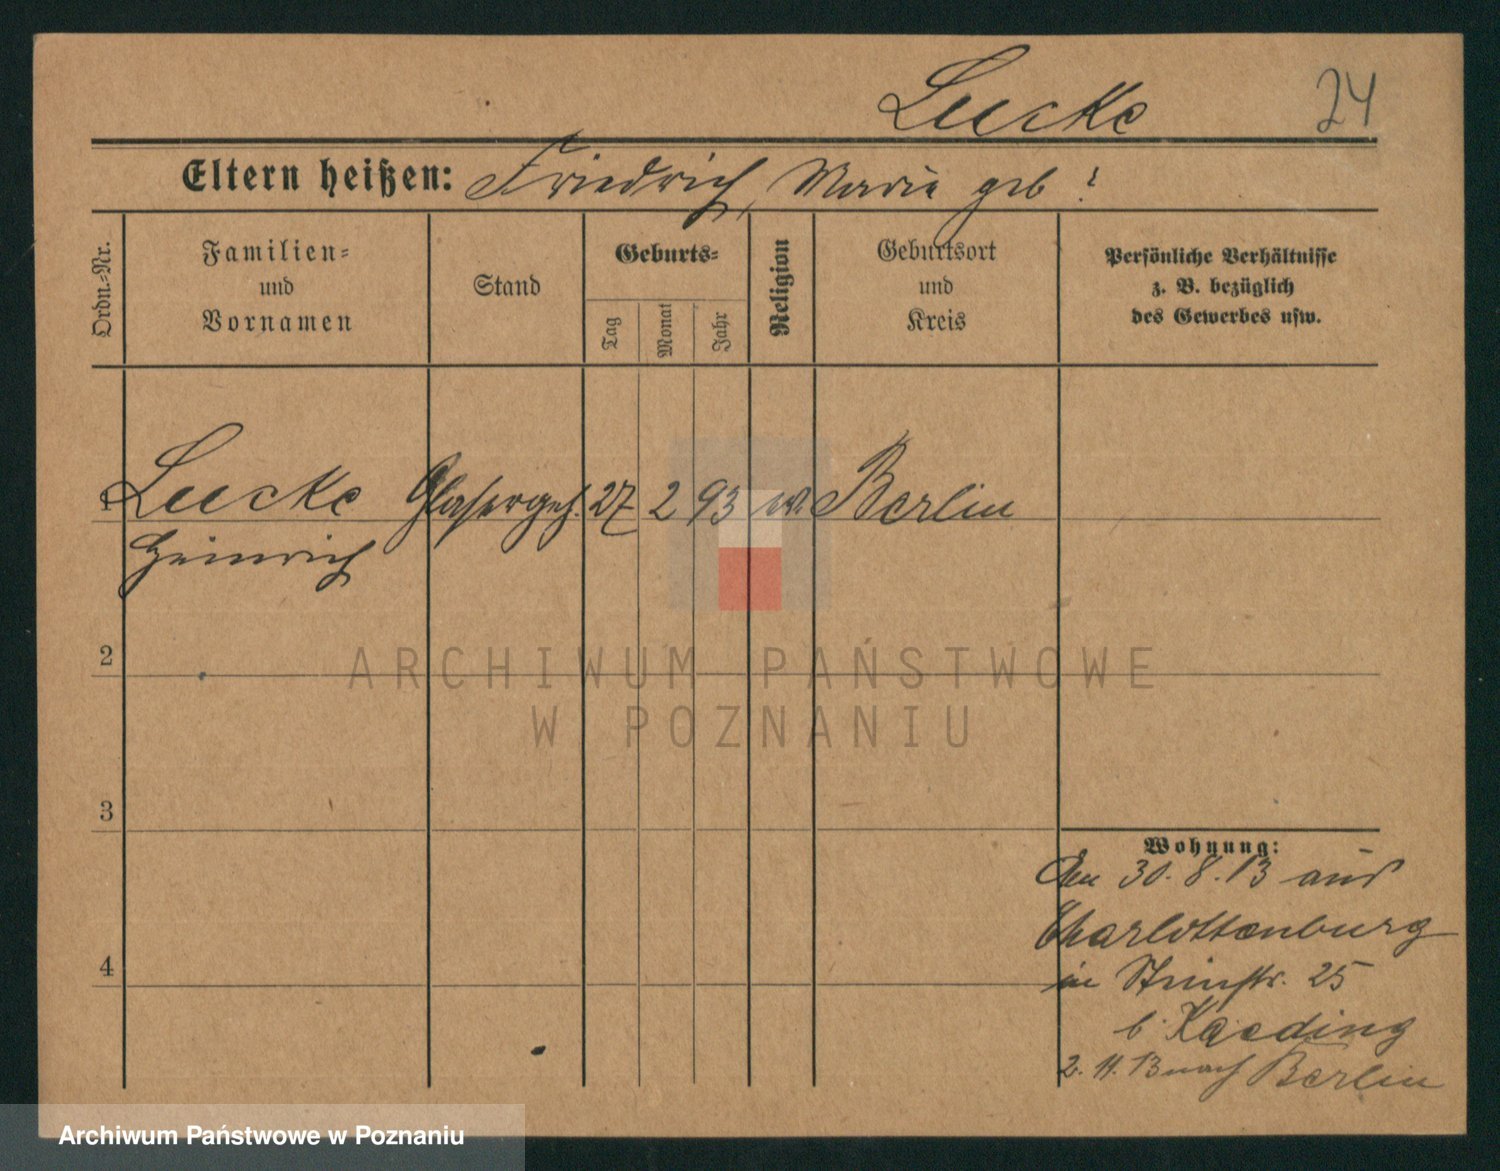 Luecke 24
Eltern heißen: Friedrich, Marie geb ?
Ordn.-Nr.
Familien=
und
Vornamen
Stand
Geburts=
Tag
Monat
Jahr
Religion
Geburtsort
und
Kreis
Persönliche Verhältnisse
z. B. bezüglich
des Gewerbes usw.
1 Luecke Glasergeh. 27 2 93 ev. Berlin
Heinrich
2
3
4
Wohnung:
Am 30. 8. 13 aus
Charlottenburg
in 25
b. Kaeding
2. 11. 13 nach Berlin
ARCHIWUM PAŃSTWOWE
W POZNANIU
Archiwum Państwowe w Poznaniu